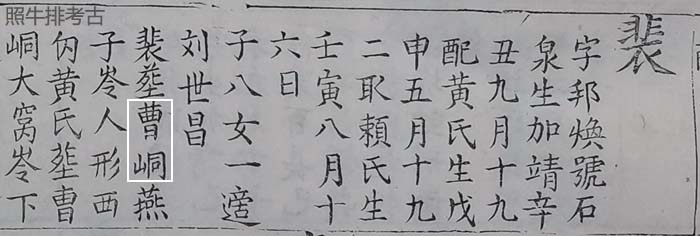 照牛排考古
裴
字邦煥號石
泉生加靖辛
丑九月十九
配黄氏生戊
申五月十九
二取賴氏生
壬寅八月十
六日
子八女一適
刘世昌
裴塟曹峒燕
子岺人形西
向黄氏塟曹
峒大窩岺下